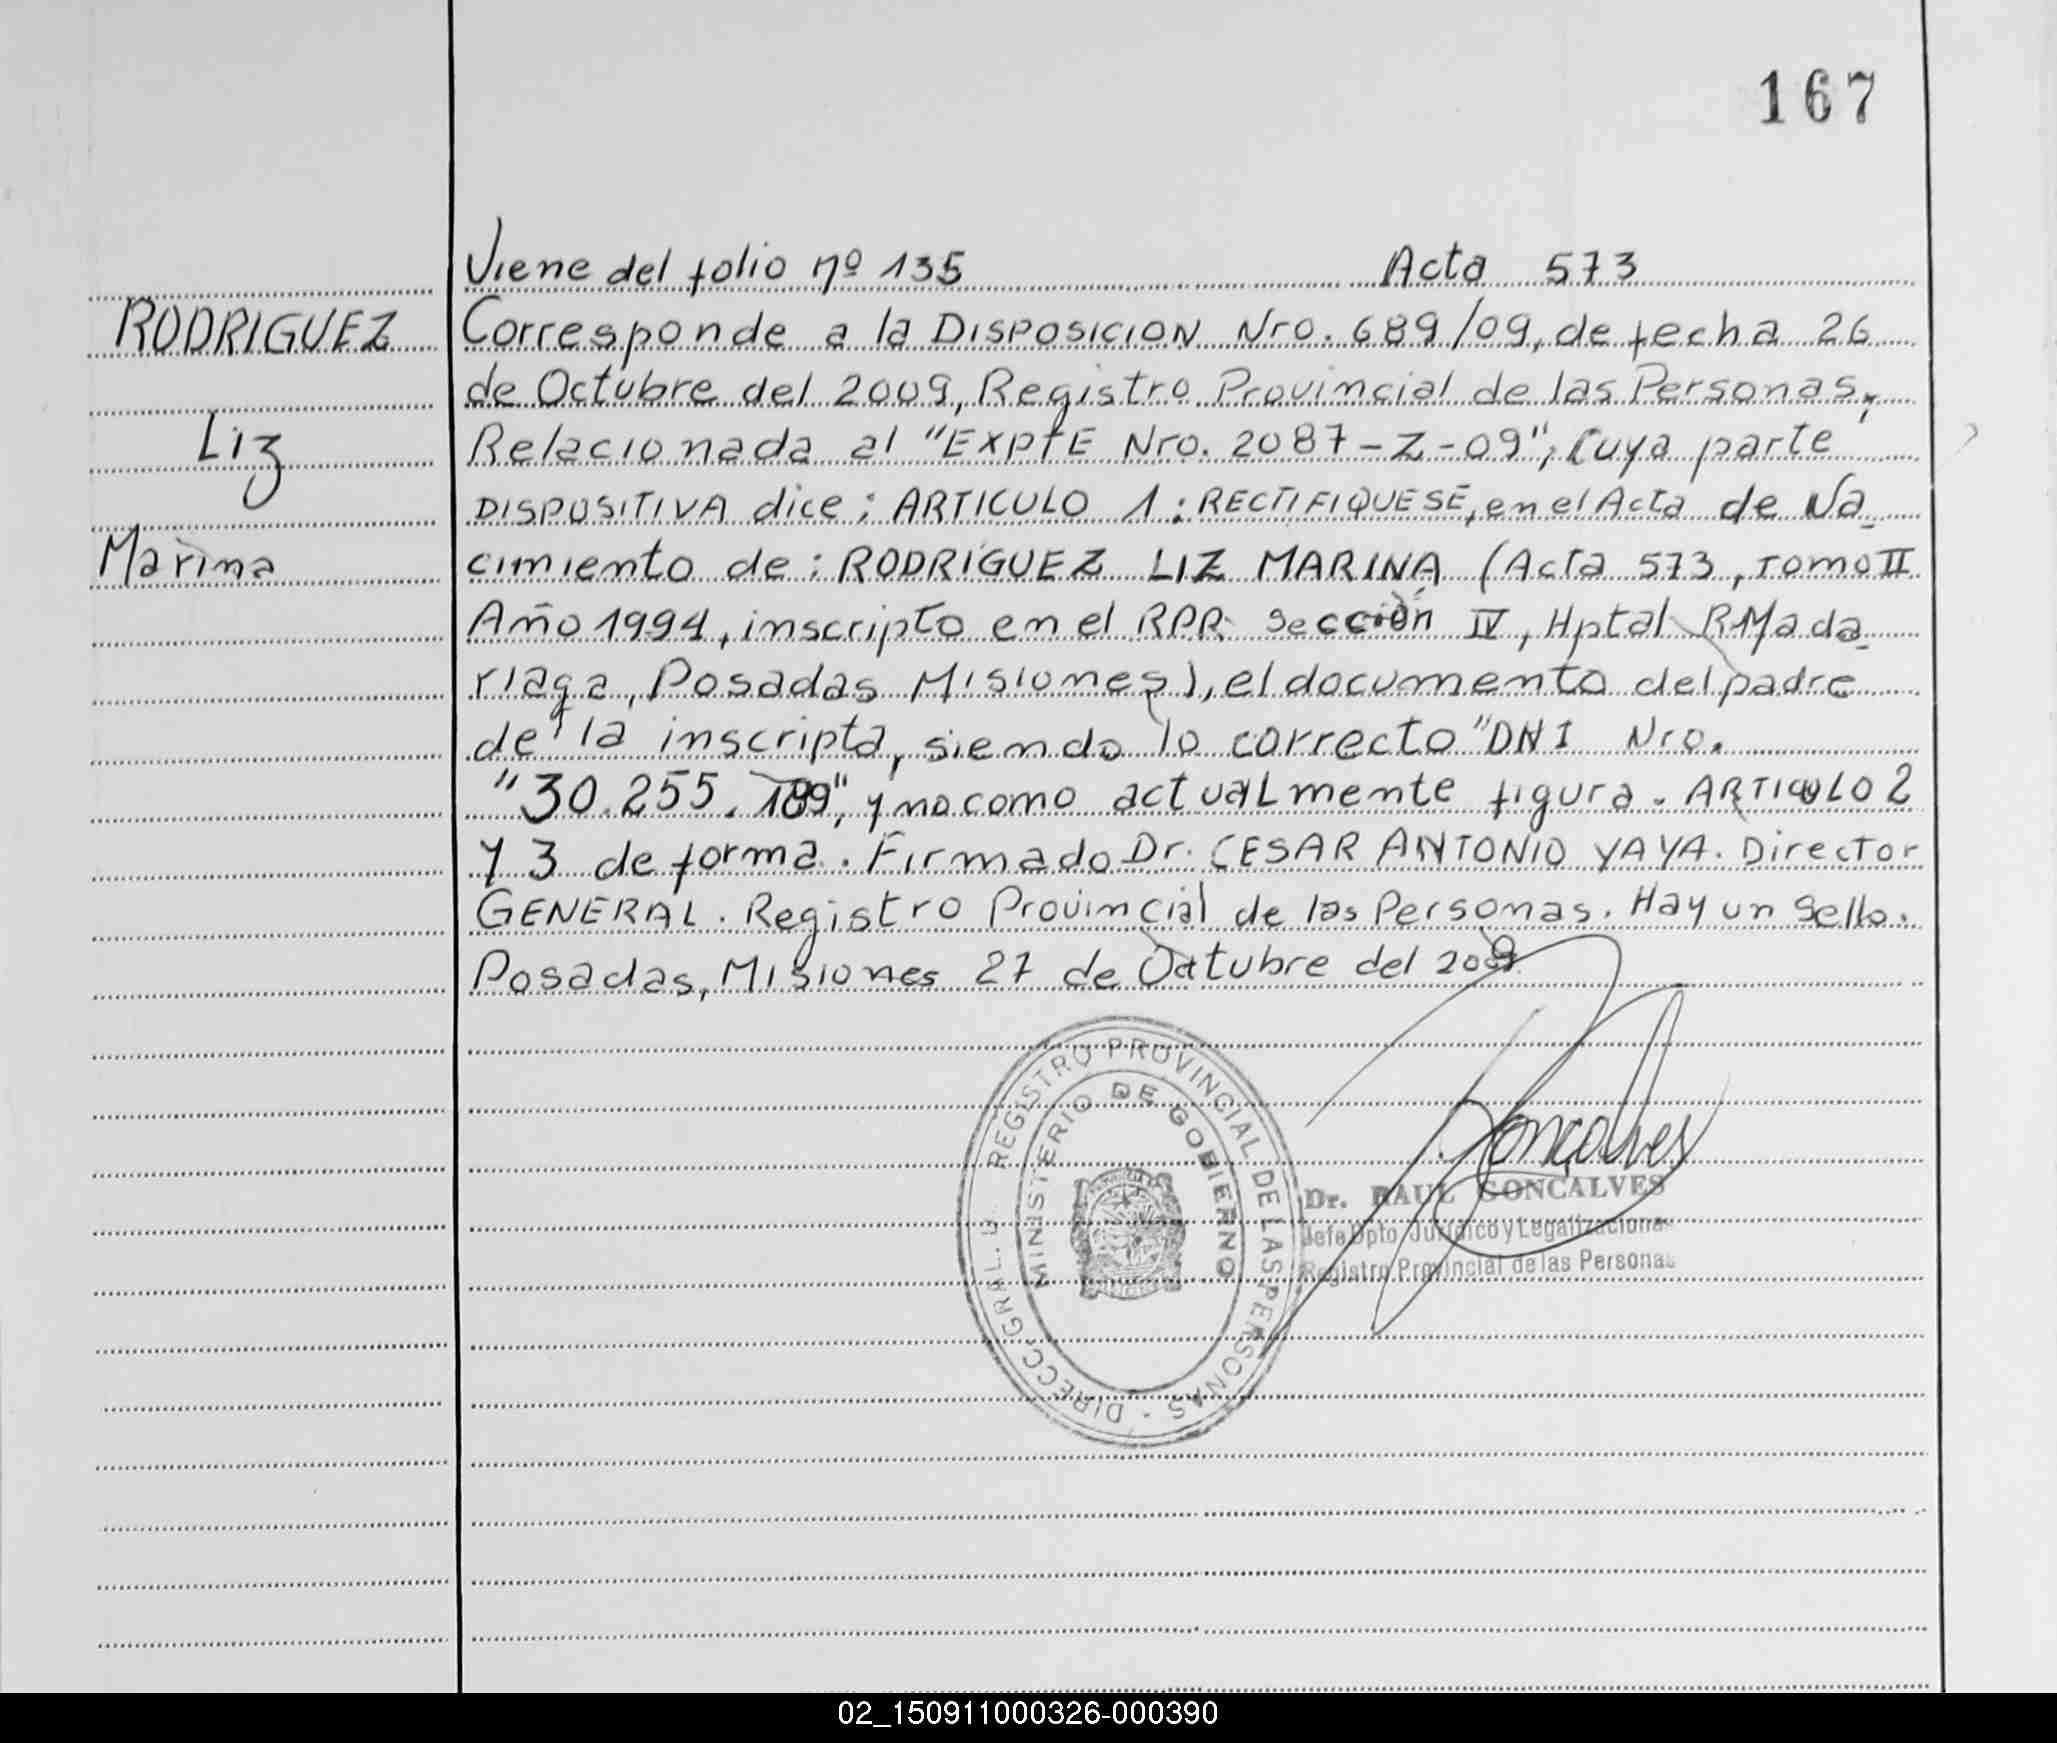 167
Viene del folio nº 135 Acta 573
RODRIGUEZ
Liz
Marina
Corresponde a la DISPOSICION Nro. 689/09, de fecha 26
de Octubre del 2009, Registro Provincial de las Personas,
Relacionada al "EXPTE Nro. 2087-Z-09", cuya parte
DISPOSITIVA dice: ARTICULO 1: RECTIFIQUESE, en el Acta de Na_
cimiento de: RODRIGUEZ LIZ MARINA (Acta 573, TOMO II
Año 1994, inscripto en el RPP. Sección IV, Hptal R Mada_
riaga, Posadas Misiones), el documento del padre
de la inscripta, siendo lo correcto "DNI Nro.
"30.255.189", y no como actualmente figura. ARTICULO 2
y 3 de forma. Firmado Dr. CESAR ANTONIO YAYA. Director
GENERAL. Registro Provincial de las Personas. Hay un sello.
Posadas, Misiones 27 de Octubre del 2009.
DIRECC. GRAL. REGISTRO PROVINCIAL DE LAS PERSONAS -
MINISTERIO DE GOBIERNO
Goncalves
Dr. RAUL GONCALVES
Jefe Dpto Jurídico y Legalizaciones
Registro Provincial de las Personas
02_150911000326-000390